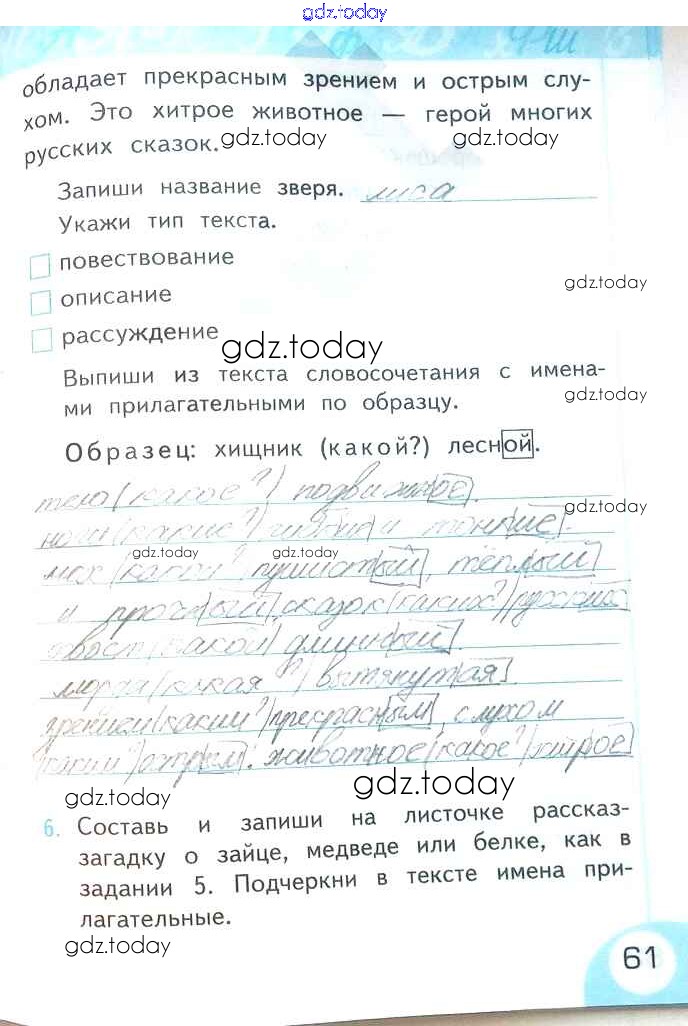 gdz.today
обладает прекрасным зрением и острым слу-
хом. Это хитрое животное — герой многих
русских сказок.
gdz.today gdz.today
Запиши название зверя. лиса
Укажи тип текста.
повествование
gdz.today
описание
рассуждение
gdz.today
Выпиши из текста словосочетания с имена-
gdz.today
ми прилагательными по образцу.
Образец: хищник (какой?) лесной.
тело (какое?) подвижное.
gdz.today
ноги (какие?) и тонкие.
gdz.today gdz.today gdz.today
мех (какой пушистый, тёплый
и прочный, сказок (каких?) русских
хвост (какой) длинный.
морда (какая?) вытянутая
зрением (каким?) прекрасным, слухом
(каким?) острым. животное (какое?) хитрое
gdz.today gdz.today
6. Составь и запиши на листочке рассказ-
загадку о зайце, медведе или белке, как в
задании 5. Подчеркни в тексте имена при-
лагательные.
gdz.today
61